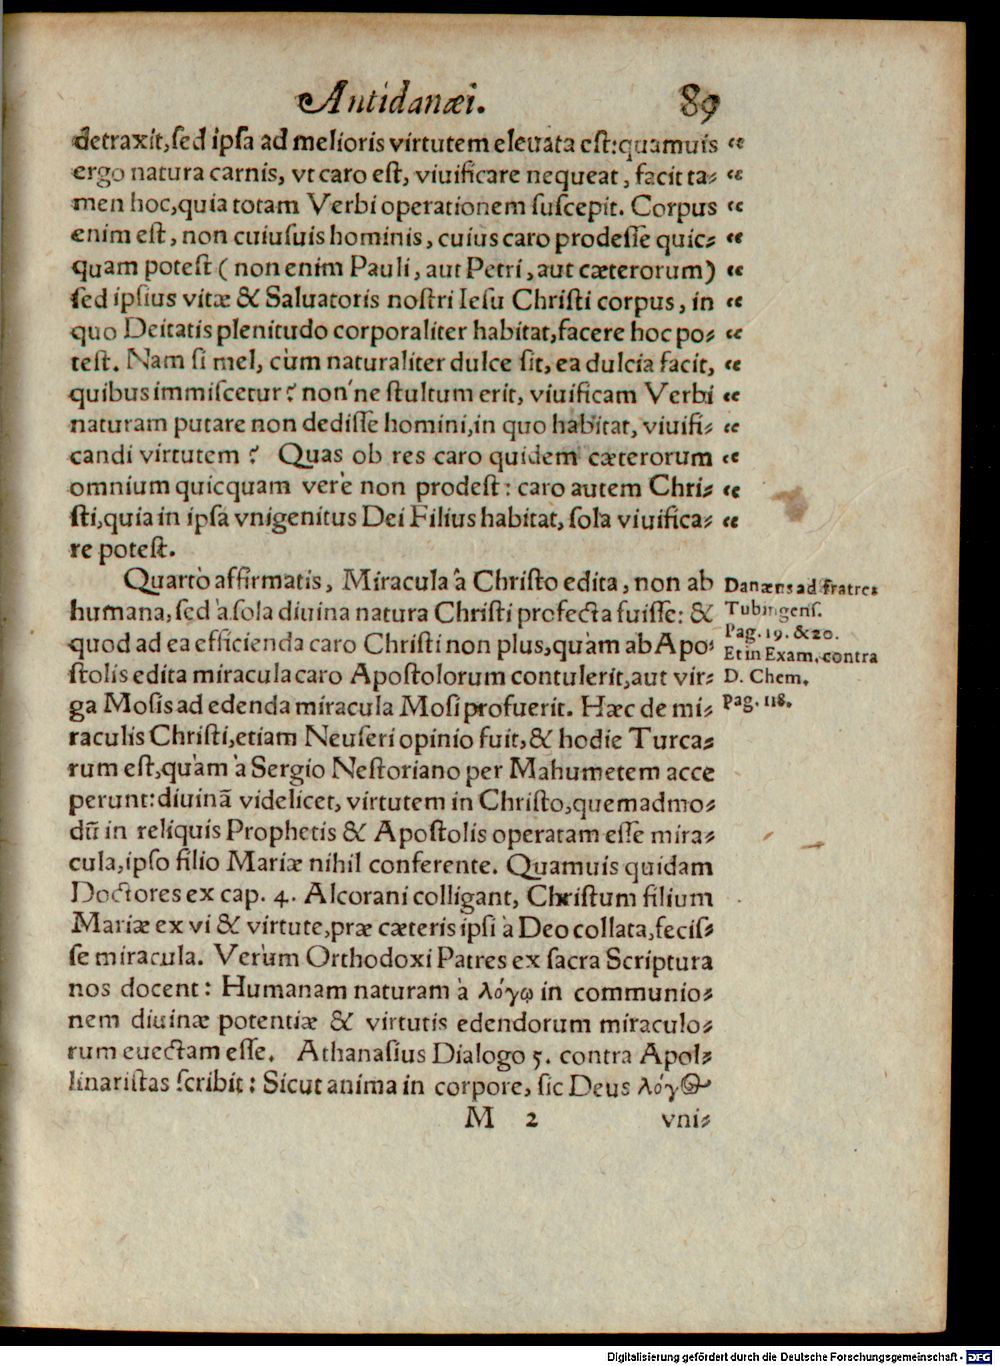 Antidanæi. 89
detraxit, sed ipsa ad melioris virtutem eleuata est: quamuis “
ergo natura carnis, vt caro est, viuificare nequeat, facit ta- “
men hoc, quia totam Verbi operationem suscepit. Corpus “
enim est, non cuiusuis hominis, cuius caro prodesse quic- “
quam potest (non enim Pauli, aut Petri, aut cæterorum) “
sed ipsius vitæ & Saluatoris nostri Iesu Christi corpus, in “
quo Deitatis plenitudo corporaliter habitat, facere hoc po- “
test. Nam si mel, cùm naturaliter dulce sit, ea dulcia facit, “
quibus immiscetur? non'ne stultum erit, viuificam Verbi “
naturam putare non dedisse homini, in quo habitat, viuifi- “
candi virtutem? Quas ob res caro quidem cæterorum “
omnium quicquam verè non prodest: caro autem Chri- “
sti, quia in ipsa vnigenitus Dei Filius habitat, sola viuifica- “
re potest.
Quartò affirmatis, Miracula â Christo edita, non ab
humana, sed à sola diuina natura Christi profecta fuisse: &
quod ad ea efficienda caro Christi non plus, quàm ab Apo-
stolis edita miracula caro Apostolorum contulerit, aut vir-
ga Mosis ad edenda miracula Mosi profuerit. Hæc de mi-
raculis Christi, etiam Neuseri opinio fuit, & hodie Turca-
rum est, quàm à Sergio Nestoriano per Mahumetem acce
perunt: diuinā videlicet, virtutem in Christo, quemadmo-
dū in reliquis Prophetis & Apostolis operatam esse mira-
cula, ipso filio Mariæ nihil conferente. Quamuis quidam
Doctores ex cap. 4. Alcorani colligant, Christum filium
Mariæ ex vi & virtute, præ cæteris ipsi à Deo collata, fecis-
se miracula. Verùm Orthodoxi Patres ex sacra Scriptura
nos docent: Humanam naturam à λόγῳ in communio-
nem diuinæ potentiæ & virtutis edendorum miraculo-
rum euectam esse. Athanasius Dialogo 5. contra Apol-
linaristas scribit: Sicut anima in corpore, sic Deus λόγος
M 2 vni-
Danæus ad fratres
Tubingens.
Pag. 19. & 20.
Et in Exam. contra
D. Chem.
Pag. 118.
Digitalisierung gefördert durch die Deutsche Forschungsgemeinschaft - DFG